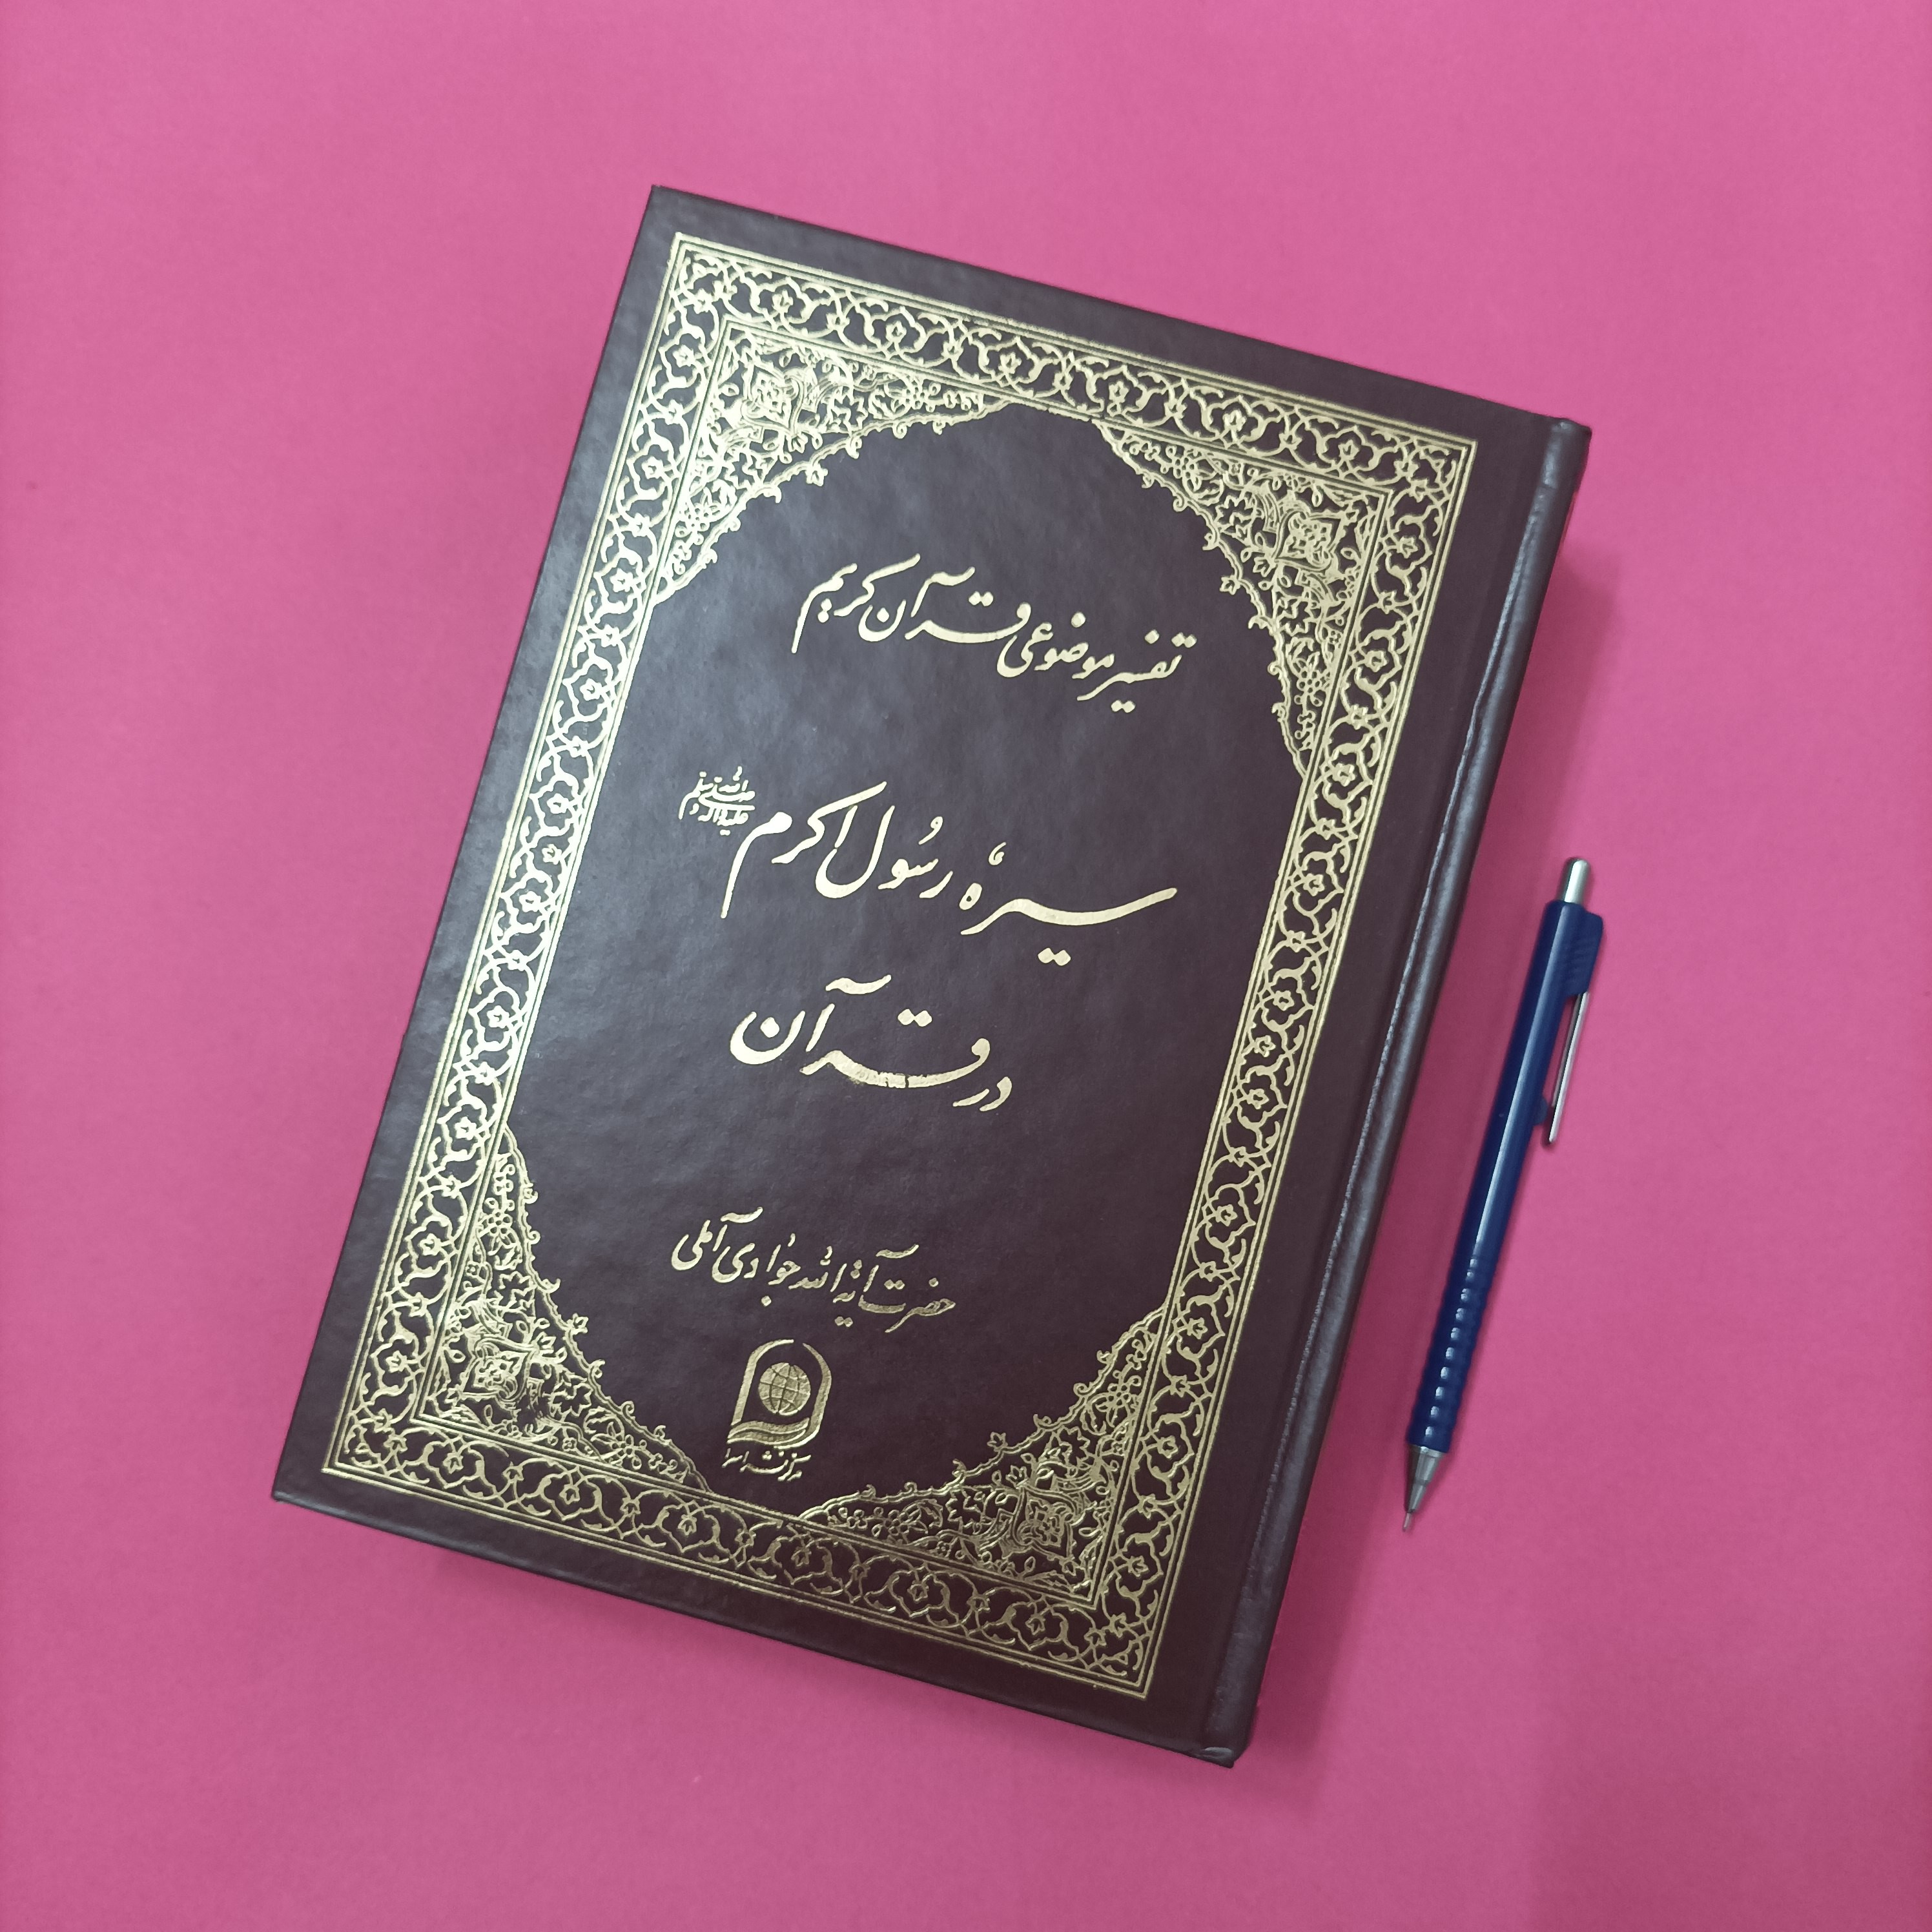 تفسیر موضوعی قرآن کریم
سیرهٔ رسول اکرم صلی الله علیه و آله و سلم
در قرآن
حضرت آیة الله جوادی آملی
مرکز نشر اسراء